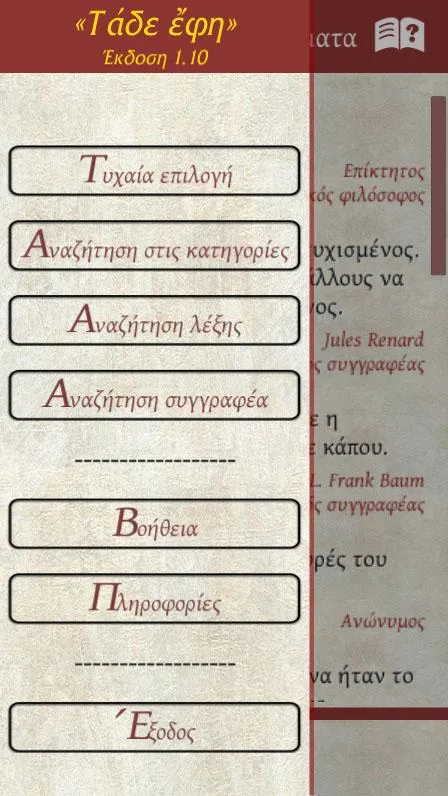 «Τάδε ἔφη»
Έκδοση 1.10
Τυχαία επιλογή
Αναζήτηση στις κατηγορίες
Αναζήτηση λέξης
Αναζήτηση συγγραφέα
Βοήθεια
Πληροφορίες
Έξοδος
Επίκτητος
φιλόσοφος
άλλους να
Jules Renard
συγγραφέας
η
κάπου.
L. Frank Baum
συγγραφέας
του
Ανώνυμος
να ήταν το